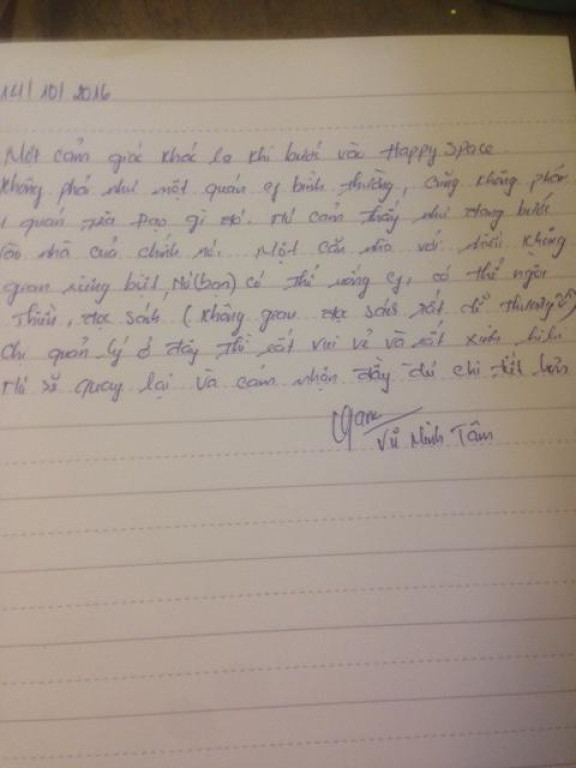 14/10/2016
Một cảm giác khác lạ khi bước vào Happy Space
Không phải như một quán cf bình thường, cũng không phải
1 quán trà Đạo gì đó. Mí cảm thấy như đang bước
vào nhà của chính nó. Một căn nhà với nhiều không
gian riêng biệt, Mí (bạn) có thể uống cf, có thể ngồi
thiền, đọc sách (không gian đọc sách rất dễ thương)
Chị quản lý ở đây thì rất vui vẻ và rất xinh hihi
Mí sẽ quay lại và cảm nhận đầy đủ chi tiết hơn
Vũ Minh Tâm